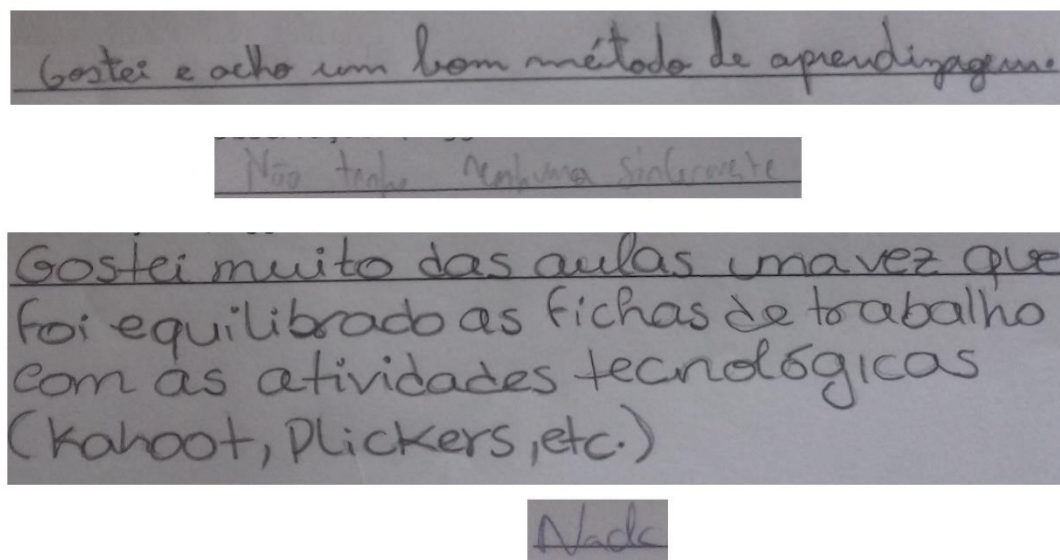 Gostei e acho um bom método de aprendizagem.
Não tenho nenhuma sinceramente
Gostei muito das aulas uma vez que
foi equilibrado as fichas de trabalho
com as atividades tecnológicas
(Kahoot, Plickers, etc.)
Nada